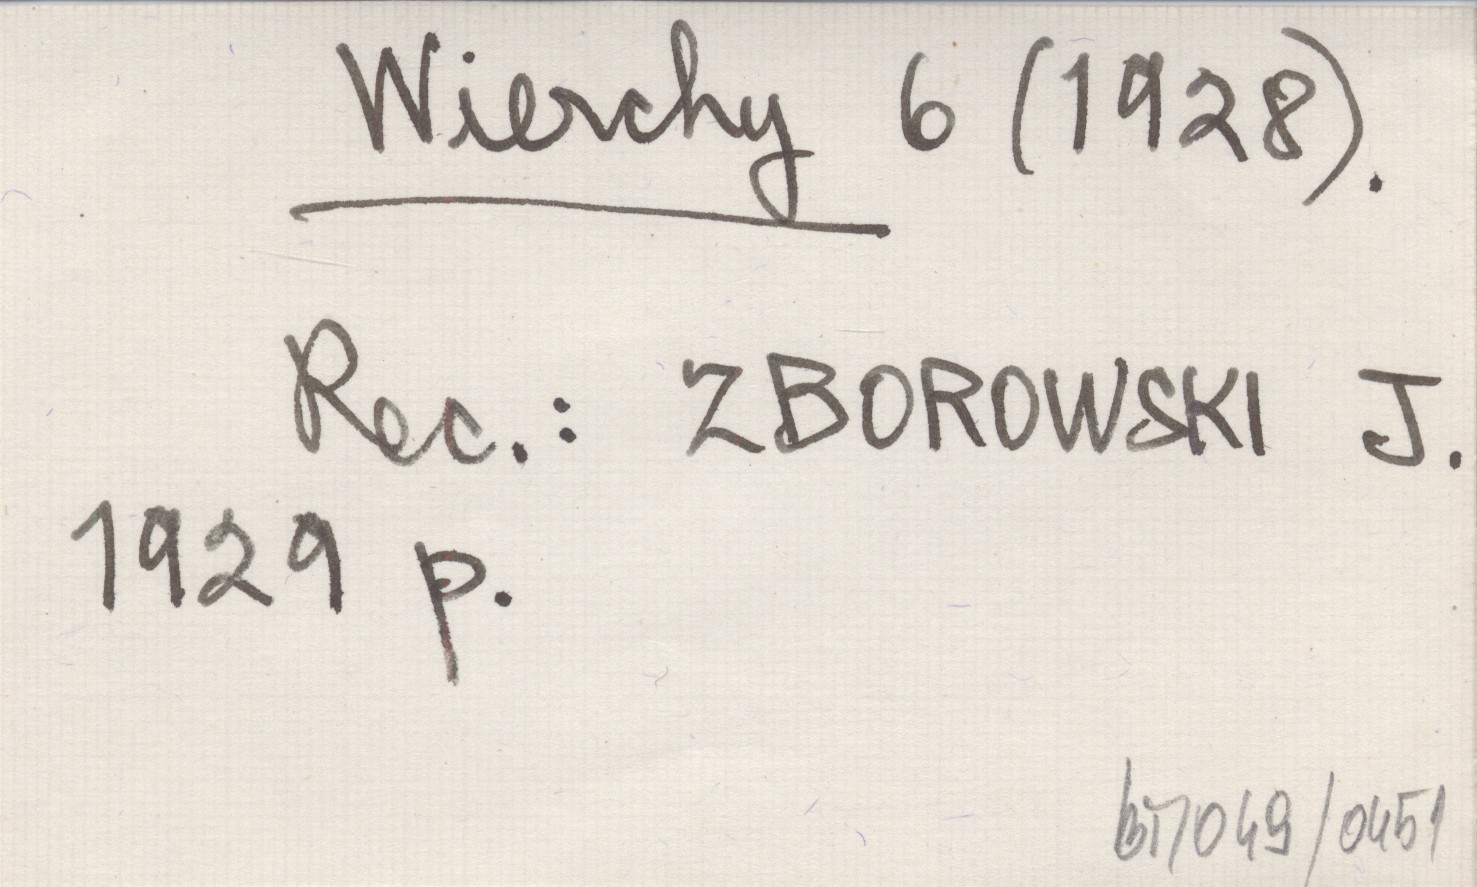 Wierchy 6 (1928).
Rec.: ZBOROWSKI J.
1929 p.
bi7049/0451